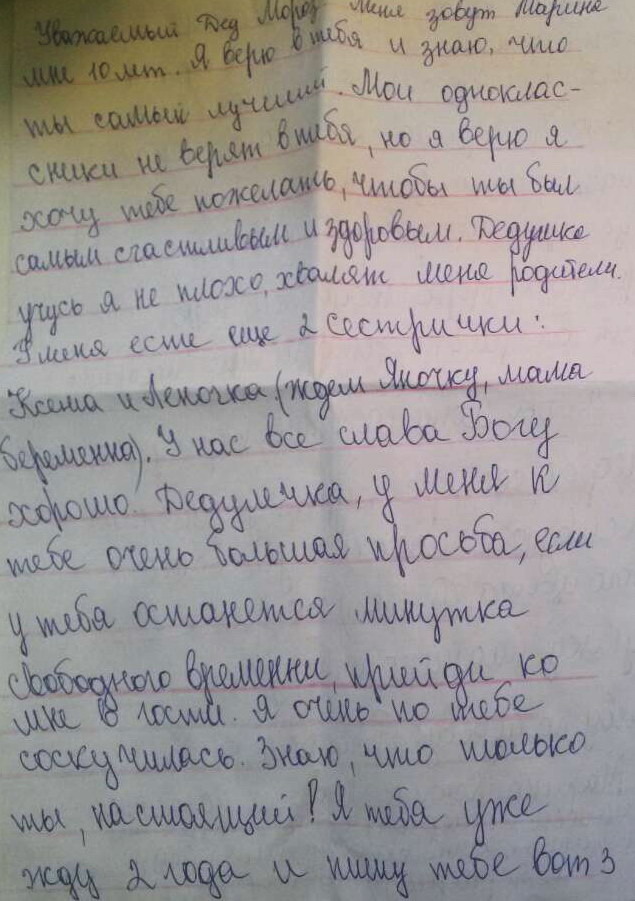 Уважаемый Дед Мороз меня зовут Марина
мне 10 лет. Я верю в тебя и знаю, что
ты самый лучший. Мои однокла­с-
сники не верят в тебя, но я верю я
хочу тебе пожелать, чтобы ты был
самым счастливым и здоровым. Дедушка
учусь я не плохо, хвалят меня родители.
У меня есте еще 2 сестрички:
Ксеша и Леночка (ждем Яночку, мама
беременна). У нас все слава Богу
хорошо. Дедулечка, у меня к
тебе очень большая просьба, если
у тебя останется минутка
свободного временни, прийди ко
мне в гости. Я очень по тебе
соскучилась. Знаю, что только
ты, настоящий! Я тебя уже
жду 2 года и пишу тебе вот 3